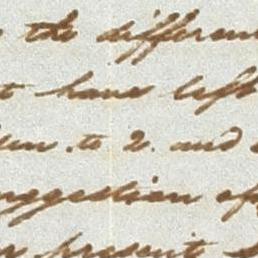 the differen
t have left
. to 2. and
uggestion of
present